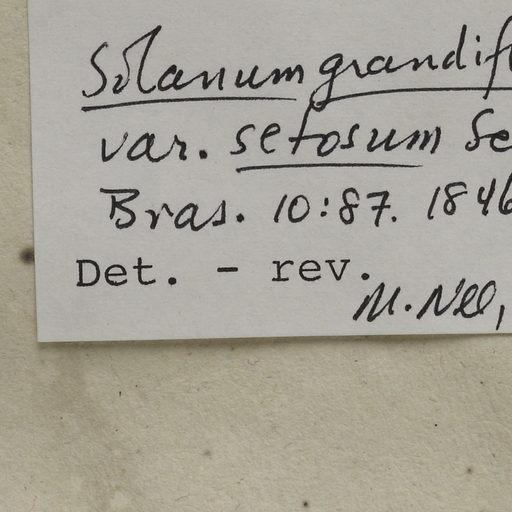 Solanum grandif
var. setosum Se
Bras. 10:87. 1846
Det. - rev.
M. Nee,